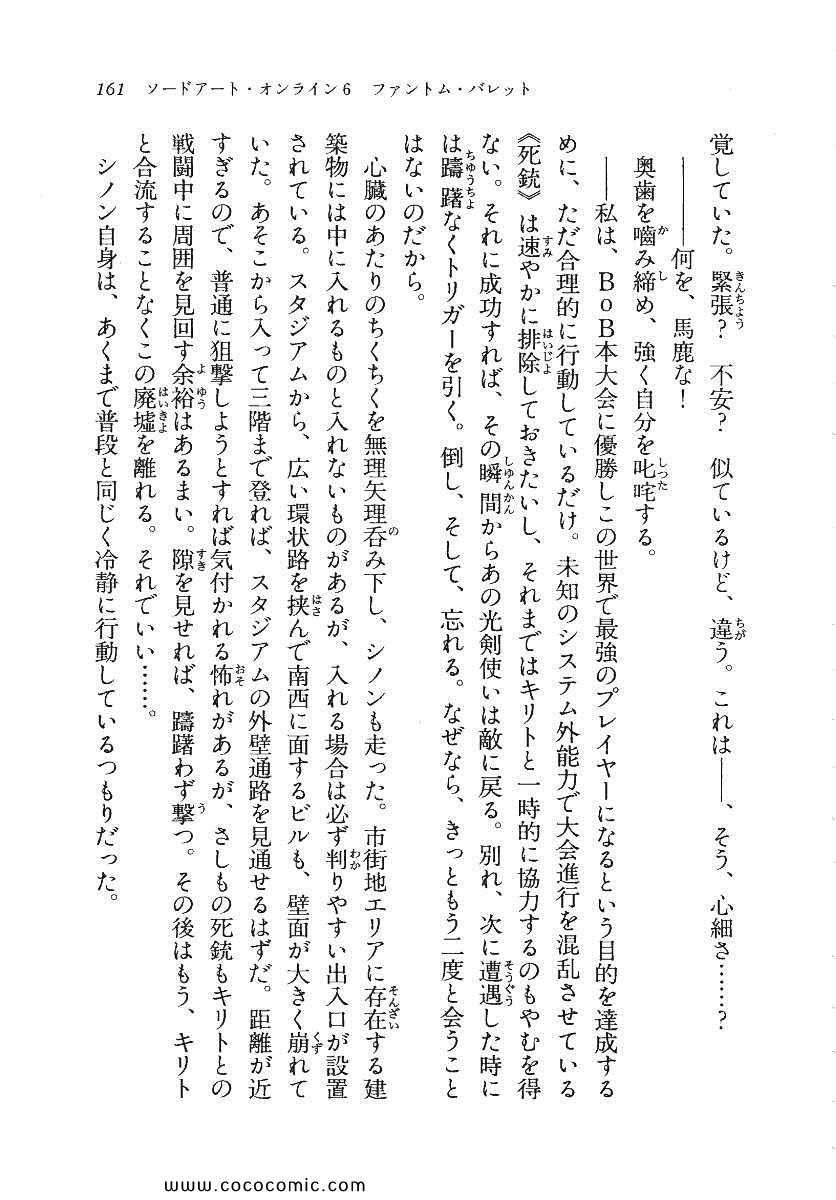 161　ソードアート・オンライン6　ファントム・バレット
覚していた。緊張？　不安？　似ているけど、違う。これは――、そう、心細さ……？
――何を、馬鹿な！
奥歯を嚙み締め、強く自分を叱咤する。
――私は、BoB本大会に優勝しこの世界で最強のプレイヤーになるという目的を達成する
ために、ただ合理的に行動しているだけ。未知のシステム外能力で大会進行を混乱させている
《死銃》は速やかに排除しておきたいし、それまではキリトと一時的に協力するのもやむを得
ない。それに成功すれば、その瞬間からあの光剣使いは敵に戻る。別れ、次に遭遇した時に
は躊躇なくトリガーを引く。倒し、そして、忘れる。なぜなら、きっともう二度と会うこと
はないのだから。
心臓のあたりのちくちくを無理矢理吞み下し、シノンも走った。市街地エリアに存在する建
築物には中に入れるものと入れないものがあるが、入れる場合は必ず判りやすい出入口が設置
されている。スタジアムから、広い環状路を挟んで南西に面するビルも、壁面が大きく崩れて
いた。あそこから入って三階まで登れば、スタジアムの外壁通路を見通せるはずだ。距離が近
すぎるので、普通に狙撃しようとすれば気付かれる怖れがあるが、さしもの死銃もキリトとの
戦闘中に周囲を見回す余裕はあるまい。隙を見せれば、躊躇わず撃つ。その後はもう、キリト
と合流することなくこの廃墟を離れる。それでいい……。
シノン自身は、あくまで普段と同じく冷静に行動しているつもりだった。
www.cococomic.com